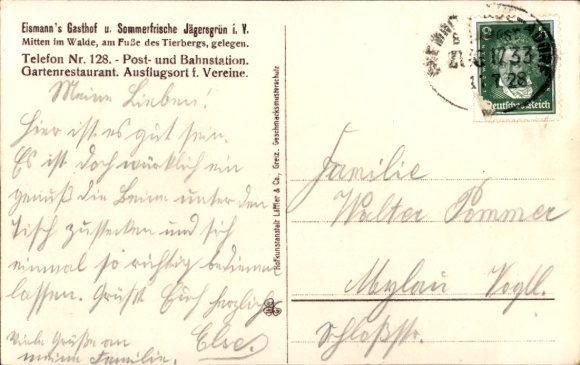 Eismann's Gasthof u. Sommerfrische Jägersgrün i. V.
Mitten im Walde, am Fuße des Tierbergs, gelegen.
Telefon Nr. 128. - Post- und Bahnstation.
Gartenrestaurant. Ausflugsort f. Vereine.
Meine Lieben!
Hier ist es gut sein.
Es ist doch würklich ein
genuß die Beine unter den
Tisch zu stecken und sich
einmal so richtig bedienen
lassen. Grüßt Euch herzlich
Else.
Viele Grüße an
meine Familie.
Hofkunstanstalt Löffler & Co., Greiz. Geschmacksmusterschutz
ZUG 1733
7.28
Deutsches Reich
Familie
Walter Pommer
Mylau Vogtl.
Schloßstr.